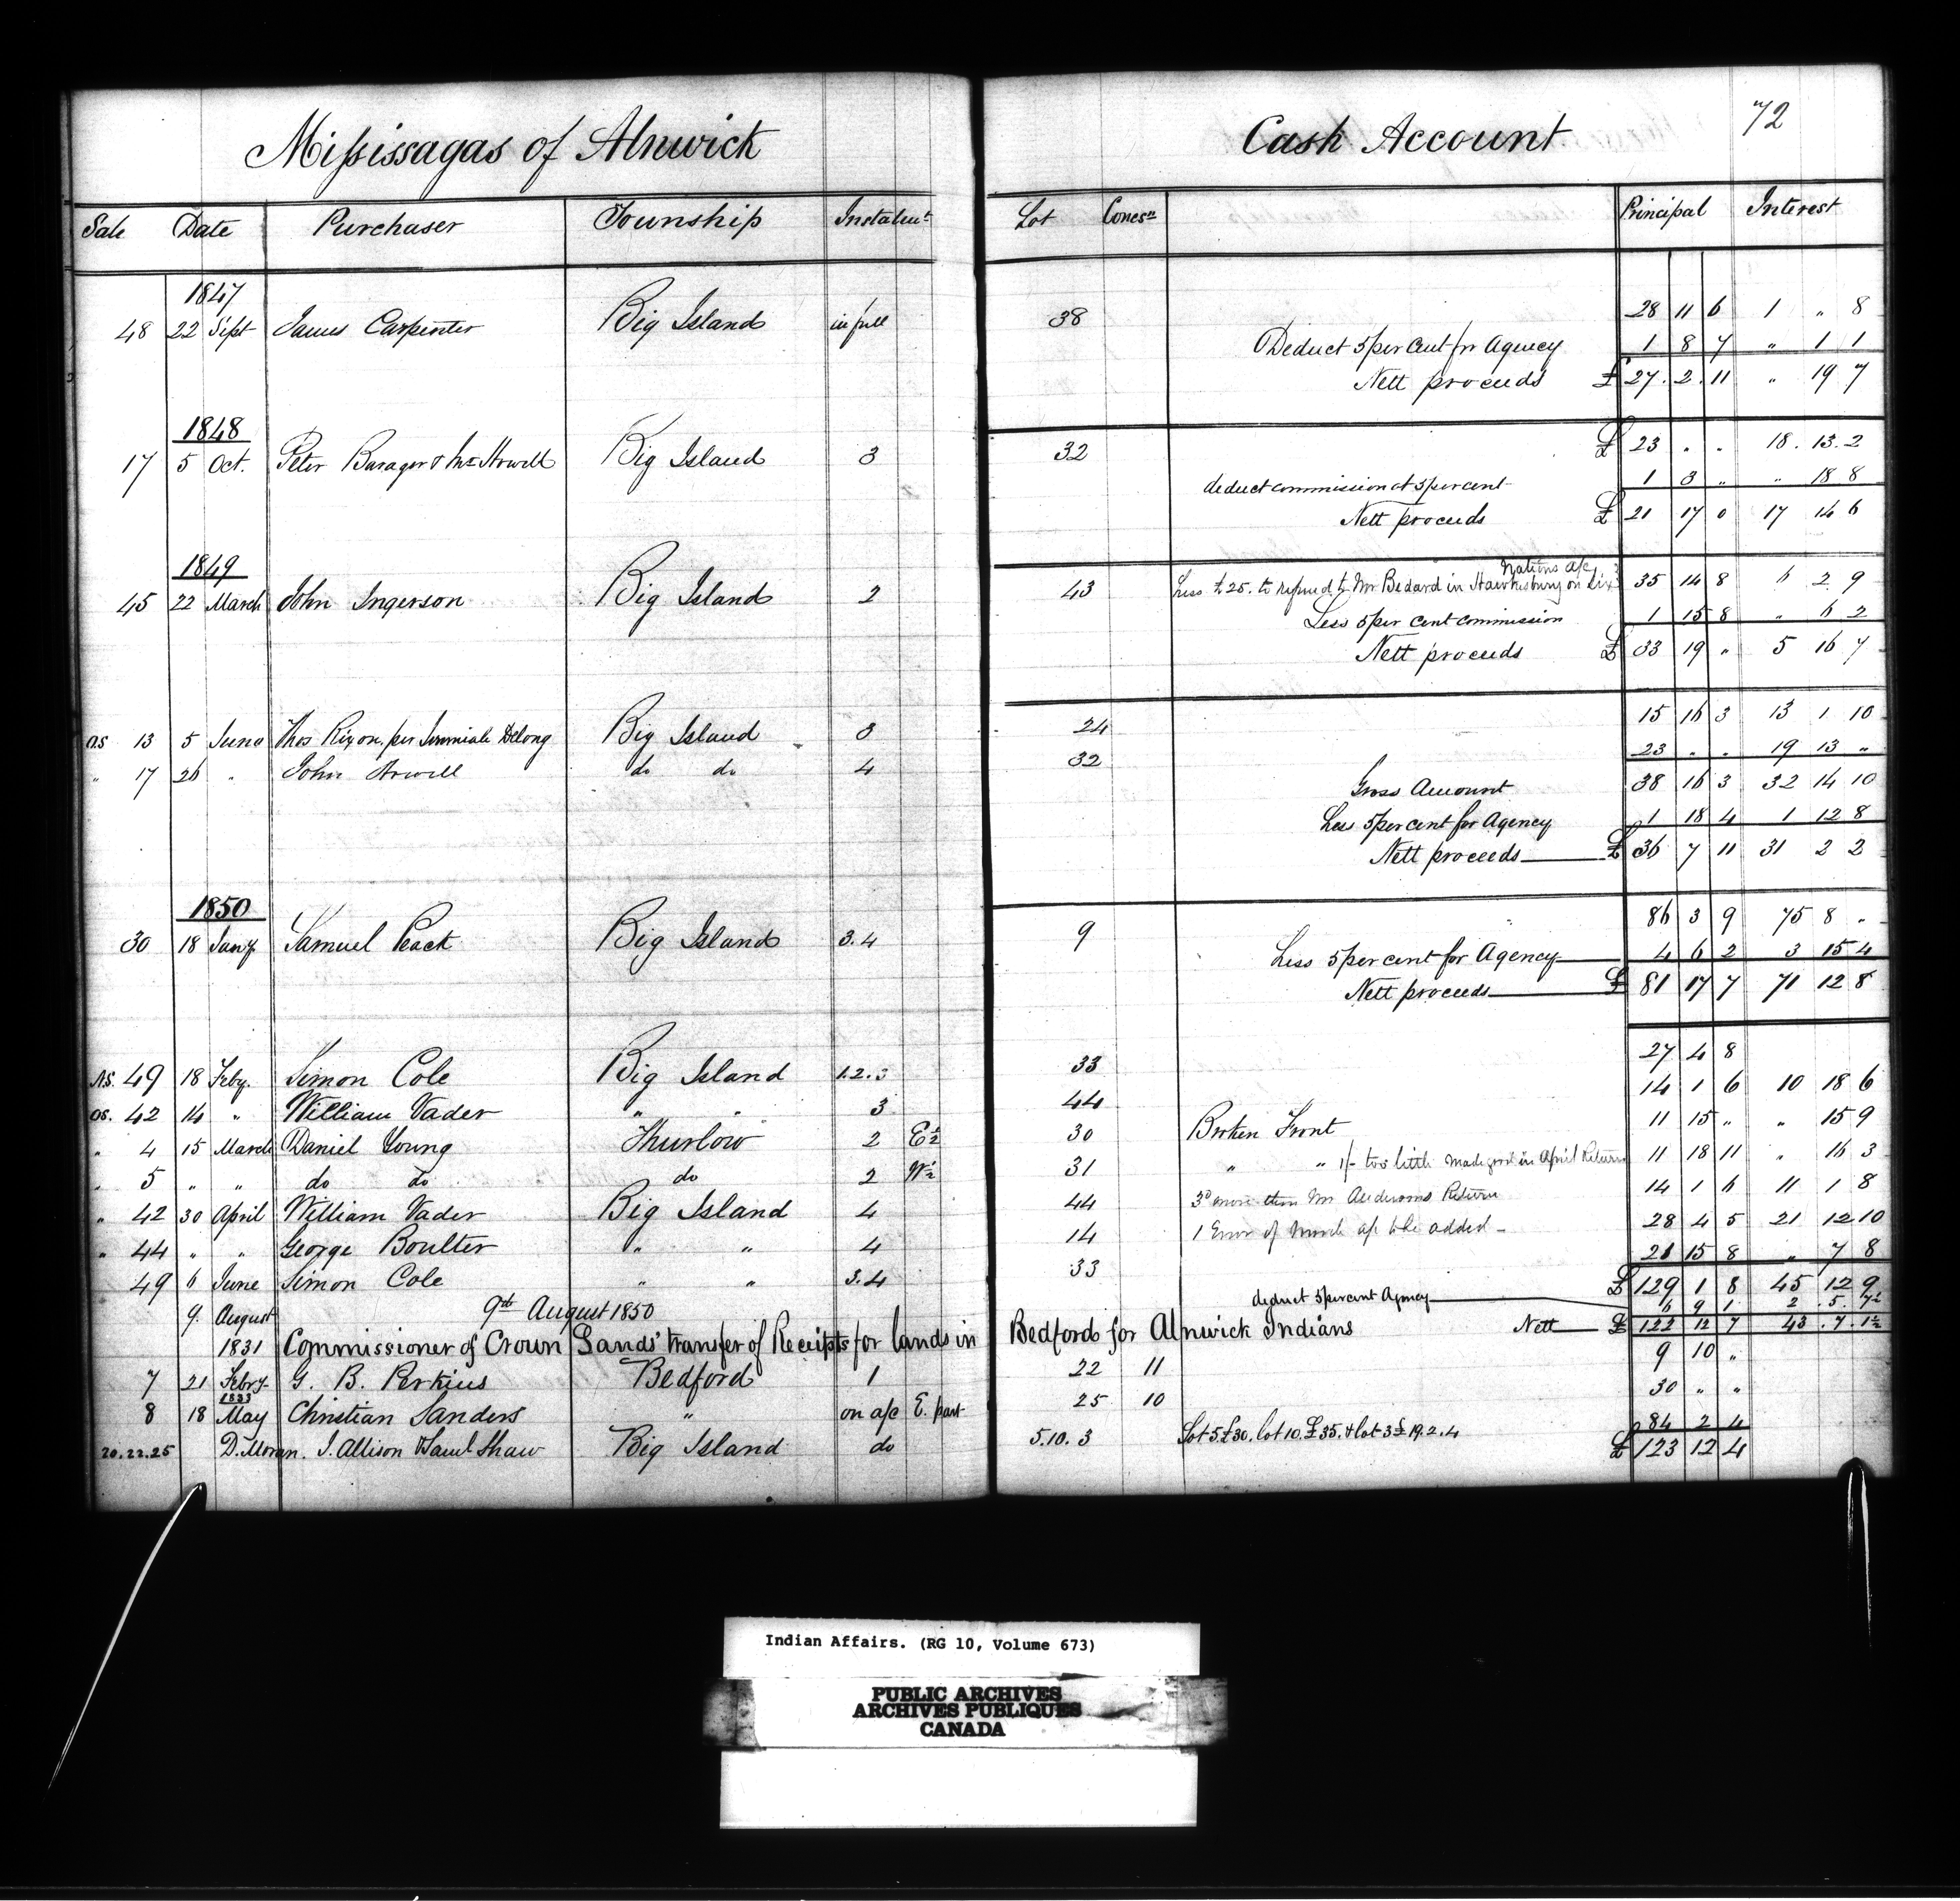 Missisagas of Alnwick Cash Account 72
Sale Date Purchaser Township Instalmt Lot Concsn Principal Interest
1847
48 22 Sept James Carpenter Big Island in full 38 28 11 6 1 " 8
Deduct 5 per Cent for Agency 1 8 7 " 1 1
Nett proceeds £ 27. 2. 11 " 19 7
1848
17 5 Oct. Peter Barager & Howell Big Island 3 32 £ 23 . . 18. 13. 2
deduct commission at 5 per cent 1 3 " " 18 8
Nett proceeds £ 21 17 0 17 14 6
1849
45 22 March John Ingerson Big Island 2 43 Less £25. to refund to Mr Bedard in Hawkesbury on Six Nations a/c 35 14 8 6 2 9
Less 5 per cent commission 1 15 8 " 6 2
Nett proceeds £ 33 19 " 5 16 7
OS 13 5 June Thos Rixon, per Jeremiah Delong Big Island 3 24 15 16 3 13 1 10
" 17 26 " John Howell do do 4 32 23 " . 19 13 "
Gross Amount 38 16 3 32 14 10
Less 5 per cent for Agency 1 18 4 1 12 8
Nett proceeds £ 36 7 11 31 2 2
1850
30 18 Jany Samuel Peack Big Island 3.4 9 86 3 9 75 8 "
Less 5 per cent for Agency 4 6 2 3 15 4
Nett proceeds £ 81 17 7 71 12 8
NS. 49 18 Feby. Simon Cole Big Island 1.2.3 33 27 4 8
OS. 42 14 " William Vader " " 3 44 14 1 6 10 18 6
" 4 15 March Daniel Young Thurlow 2 E½ 30 Broken Front 11 15 " " 15 9
" 5 " " do do do 2 W½ 31 " " 1/- too little made good in April Return 11 18 11 " 16 3
" 42 30 April William Vader Big Island 4 44 3d more than Mr Andersons Return 14 1 6 11 1 8
" 44 " " George Boulter " " 4 14 1 Error of March a/c to be added 28 4 5 21 12 10
49 6 June Simon Cole " " 3.4 33 21 15 8 " 7 8
£ 129 1 8 45 12 9
9. August 9th August 1850 deduct 5 per cent Agency 6 9 1 2. 5. 7½
Nett £ 122 12 7 43. 7. 1½
1831 Commissioner of Crown Lands' transfer of Receipts for lands in Bedford for Alnwick Indians
7 21 Feby G. B. Perkins Bedford 1 22 11 9 10 "
1833
8 18 May Christian Sanders " on a/c E. part 25 10 30 " "
20.22.25 D. Moran. J. Allison & Saml Shaw Big Island do 5.10.3 Lot 5. £30. lot 10. £35. & lot 3 £19.2.4 84 2 4
£ 123 12 4
Indian Affairs. (RG 10, Volume 673)
PUBLIC ARCHIVES
ARCHIVES PUBLIQUES
CANADA